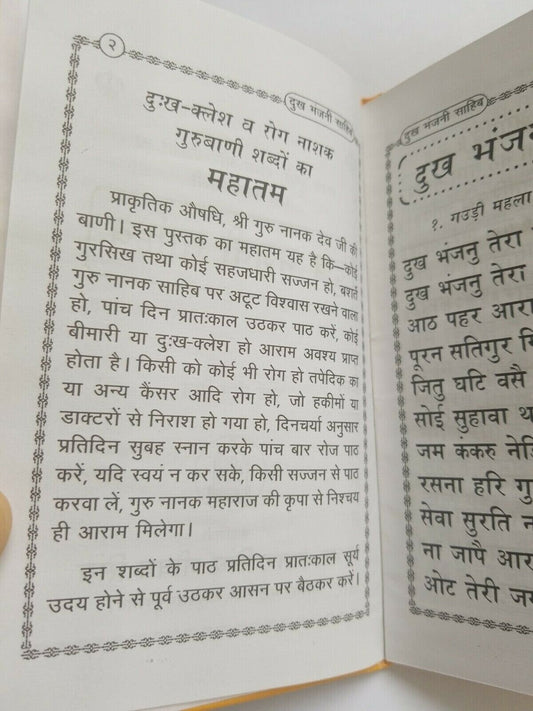 २
दुख भंजनी साहिब
दुःख-क्लेश व रोग नाशक
गुरुबाणी शब्दों का
महातम
प्राकृतिक औषधि, श्री गुरु नानक देव जी की
बाणी। इस पुस्तक का महातम यह है कि—कोई
गुरसिख तथा कोई सहजधारी सज्जन हो, बशर्ते
गुरु नानक साहिब पर अटूट विश्वास रखने वाला
हो, पांच दिन प्रातःकाल उठकर पाठ करें, कोई
बीमारी या दुःख-क्लेश हो आराम अवश्य प्राप्त
होता है। किसी को कोई भी रोग हो तपेदिक का
या अन्य कैंसर आदि रोग हो, जो हकीमों या
डाक्टरों से निराश हो गया हो, दिनचर्या अनुसार
प्रतिदिन सुबह स्नान करके पांच बार रोज पाठ
करें, यदि स्वयं न कर सके, किसी सज्जन से पाठ
करवा लें, गुरु नानक महाराज की कृपा से निश्चय
ही आराम मिलेगा।
इन शब्दों के पाठ प्रतिदिन प्रातःकाल सूर्य
उदय होने से पूर्व उठकर आसन पर बैठकर करें।
दुख भंजनी साहिब
दुख
१. गउड़ी महला
दुख भंजनु तेरा
दुख भंजनु तेरा
आठ पहर
पूरन सतिगुर
जितु घटि वसै
सोई सुहावा
जम कंकरु
रसना हरि
सेवा सुरति
ना जापै
ओट तेरी